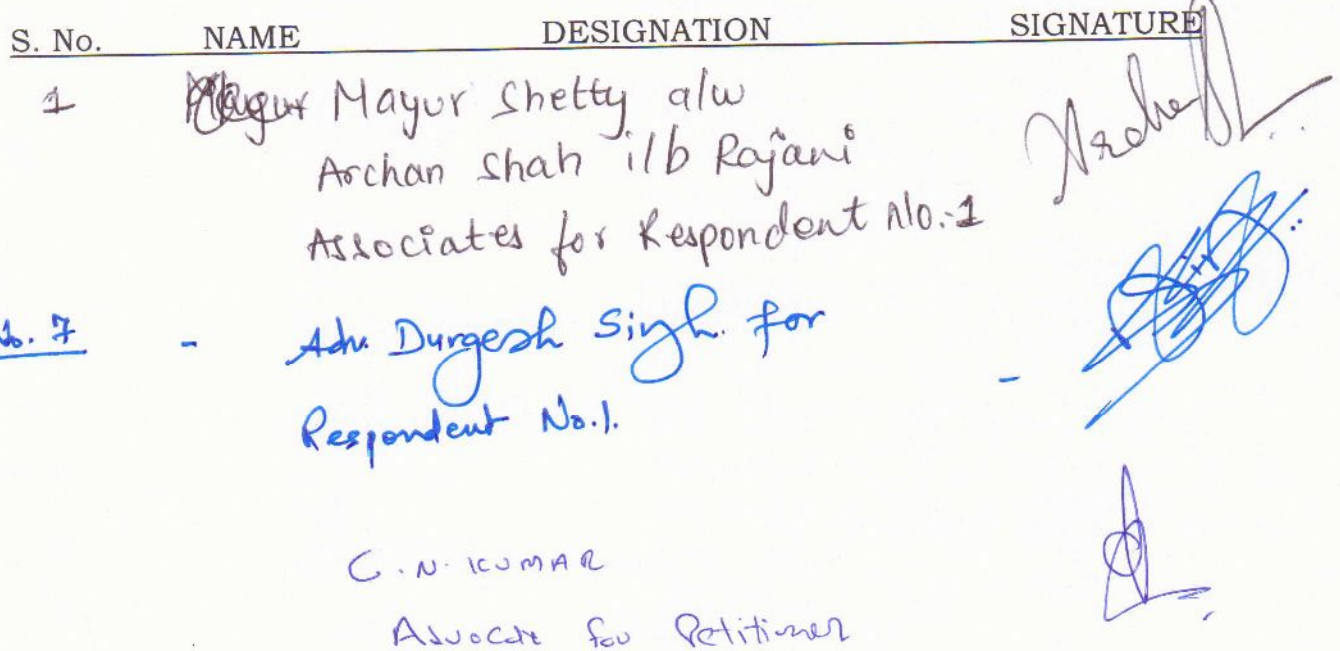 S. No. NAME DESIGNATION SIGNATURE
1 Mayur Shetty a/w
Archan Shah i/b Rajani
Associates for Respondent No.-1
No. 7 - Adv. Durgesh Singh. for -
Respondent No.1.
C.N. KUMAR
Advocate for Petitioner